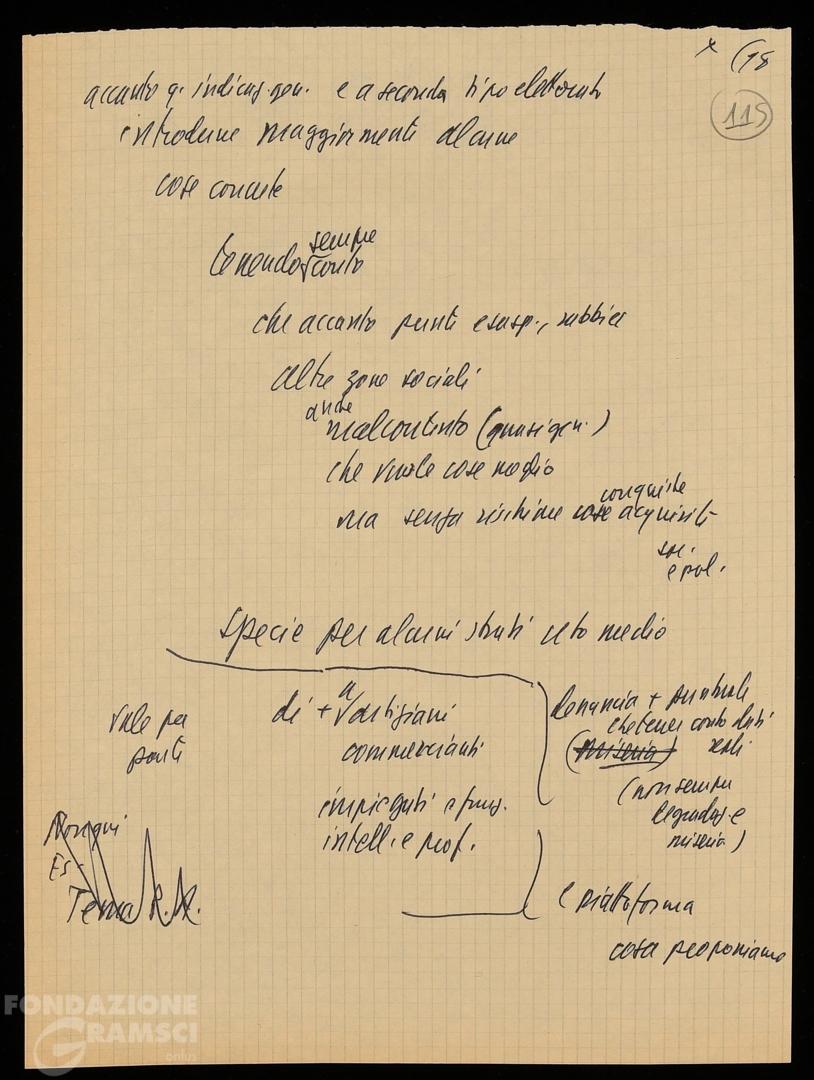 x (18
115
accanto q. indicaz. gen. e a seconda tipo elettorato
introdurre maggiormente alcune
cose concrete
sempre
tenendo conto
che accanto punti esasp., rabbia
altre zone sociali
anche
malcontento (quasi gen.)
che vuole cose meglio
conquiste
ma senza rischiare cose acquisite
soc.
e pol.
specie per alcuni strati ceto medio
vale per
parti
di + a artigiani
commercianti
impiegati e funz.
intell. e prof.
denuncia + puntuale
che tener conto dati
(miseria) reali
(non sempre
degradaz. e
miseria)
Es.
Tema R.
e piattaforma
cosa proponiamo
FONDAZIONE
GRAMSCI
onlus